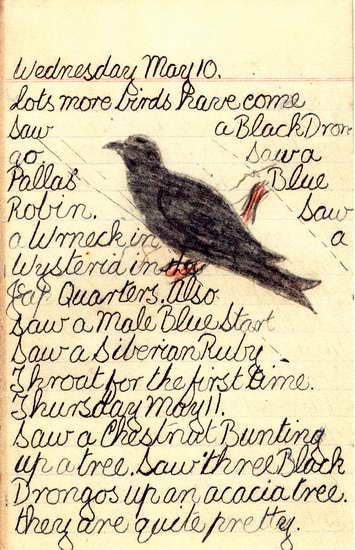 Wednesday May 10.
Lots more birds have come
Saw a Black Dron
go. Saw a
Pallas Blue
Robin. Saw
a Wrneck in a
Wysteria in the
Jap Quarters. Also
Saw a Male Blue Start
Saw a Siberian Ruby
Throat for the first time.
Thursday May 11.
Saw a Chestnat Bunting
up a tree. Saw three Black
Drongos up an acacia tree.
they are quite pretty.